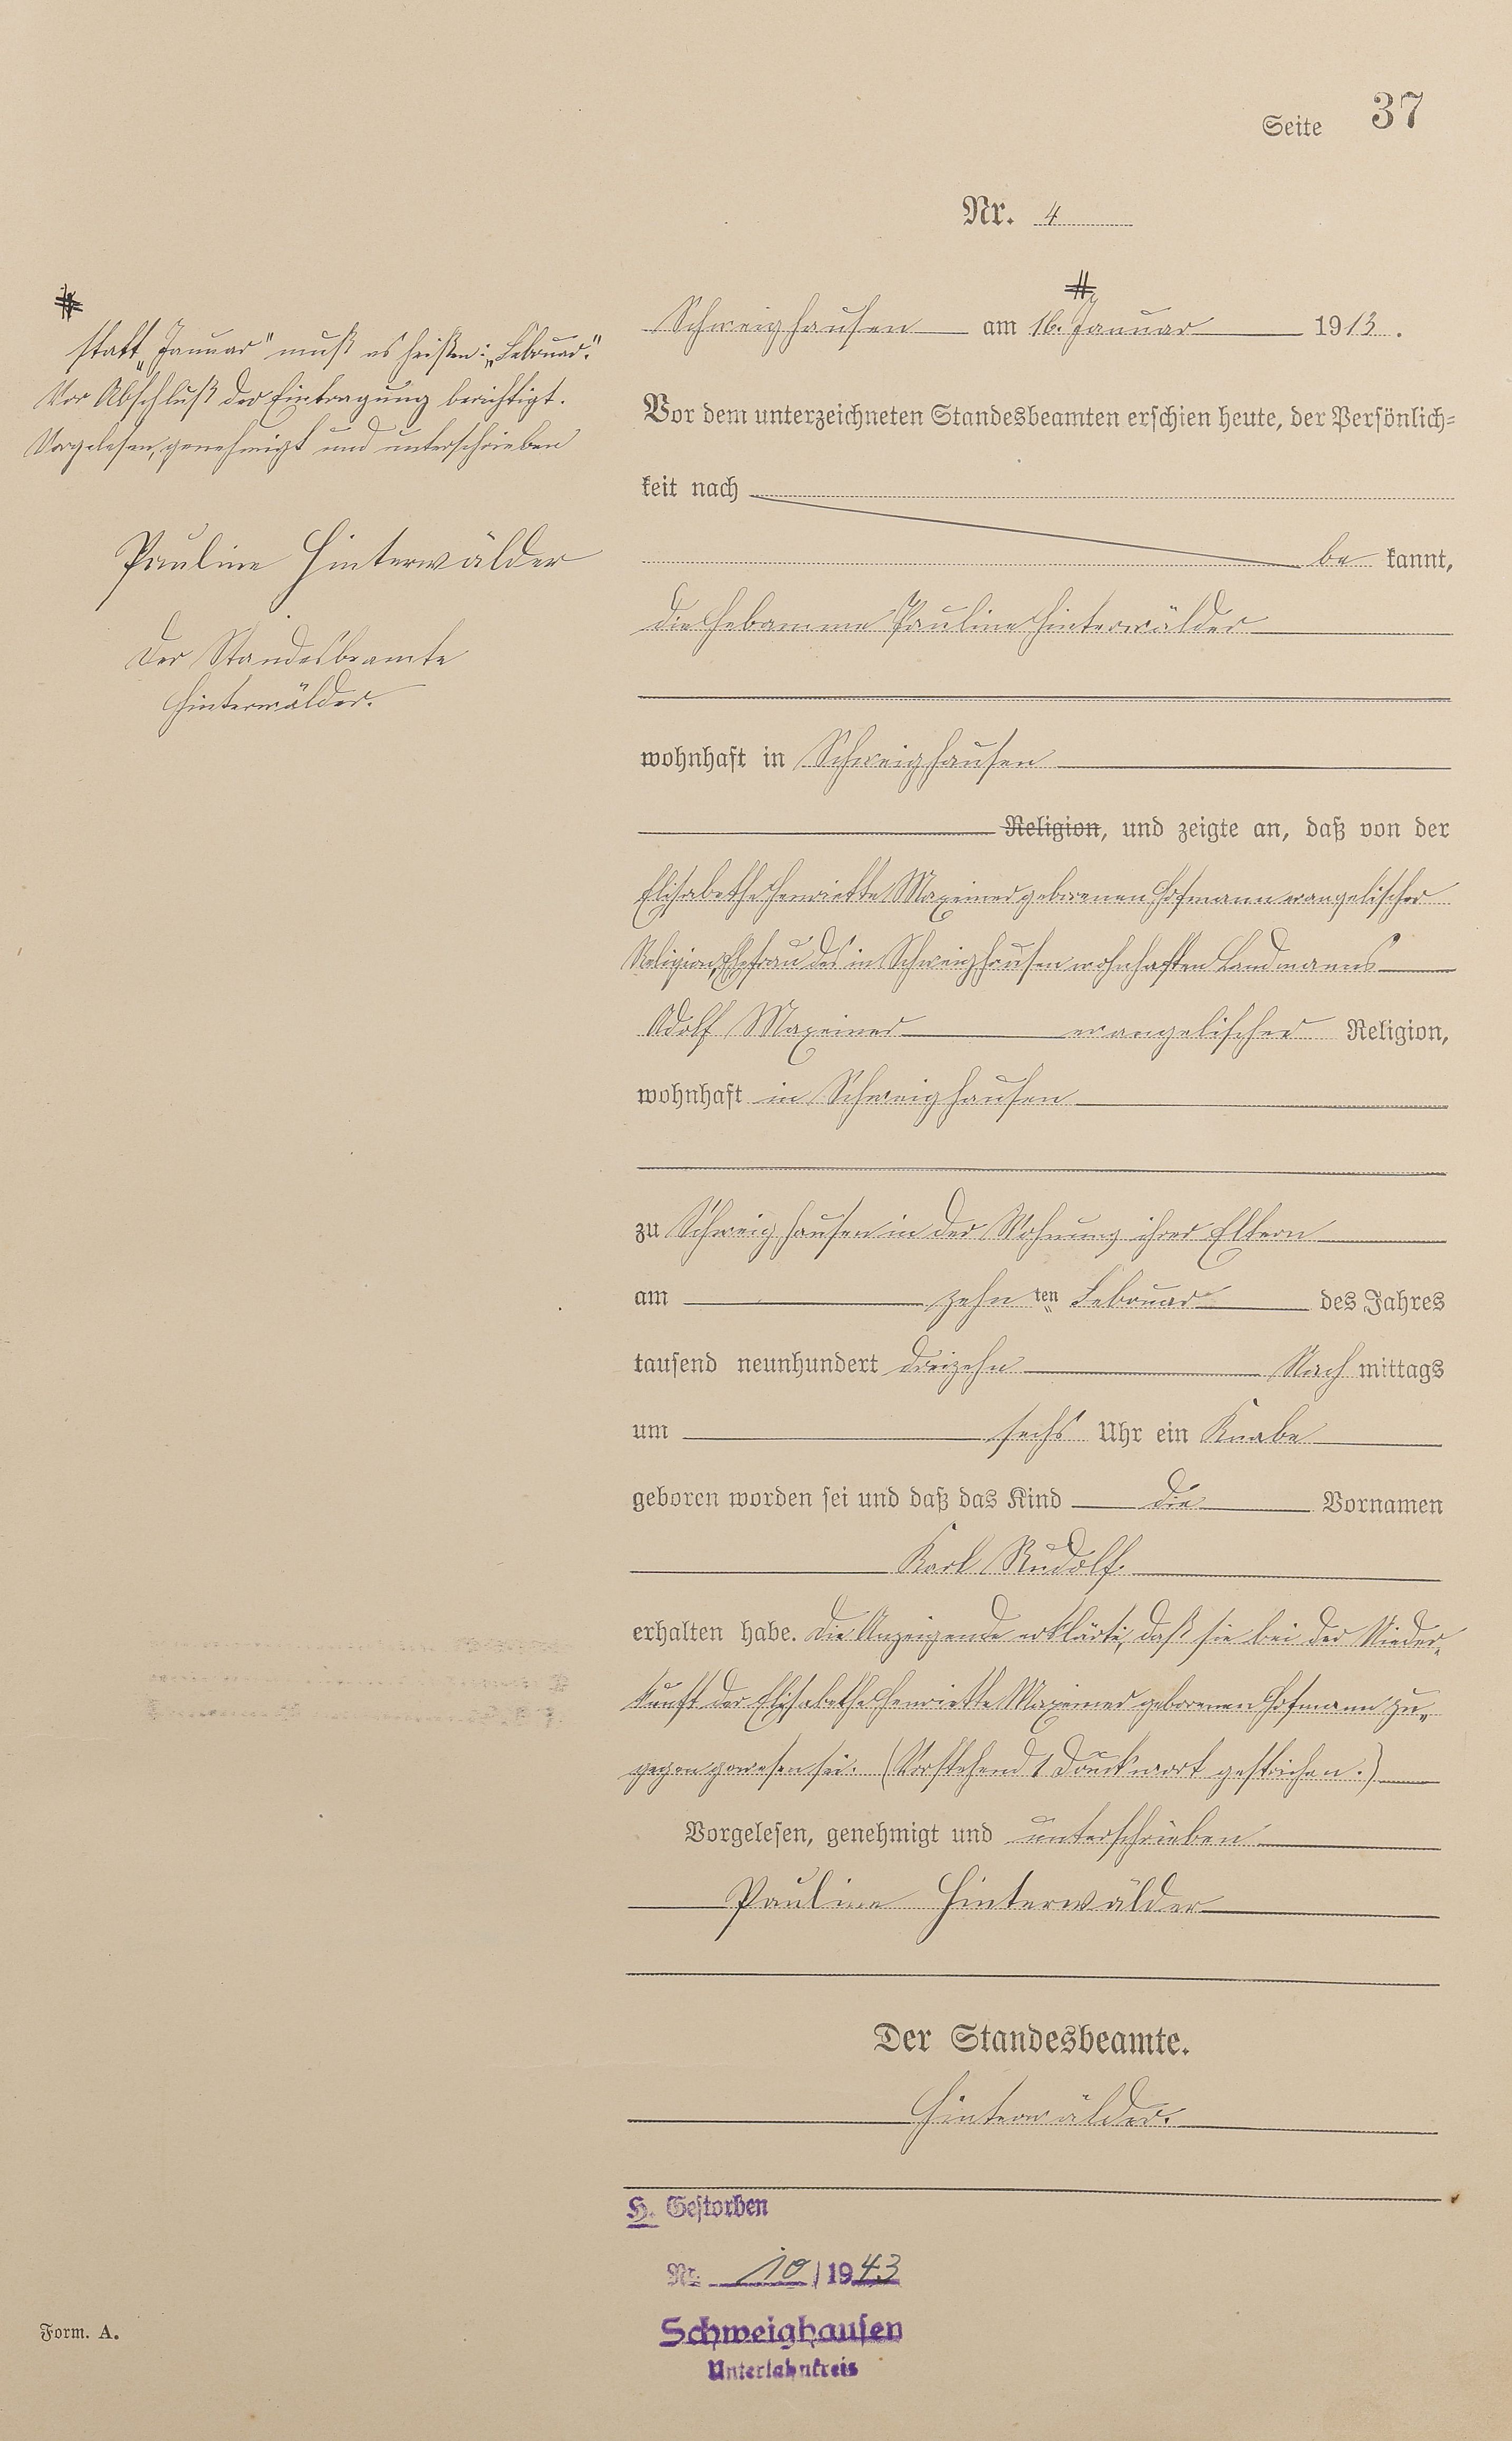 Seite 37
Nr. 4
#
Schweighausen am 16. Januar 1913.
Vor dem unterzeichneten Standesbeamten erschien heute, der Persönlich=
keit nach
be kannt,
die Hebamme Pauline Hinterwälder
wohnhaft in Schweighausen
Religion, und zeigte an, daß von der
Elisabethe Henriette Maxeiner geborenen Hofmann evangelischer
Religion, Ehefrau des in Schweighausen wohnhaften Landmanns
Adolf Maxeiner evangelischer Religion,
wohnhaft in Schweighausen
zu Schweighausen in der Wohnung ihrer Eltern
am zehn ten Februar des Jahres
tausend neunhundert dreizehn Nach mittags
um sechs Uhr ein Knabe
geboren worden sei und daß das Kind die Vornamen
Karl Rudolf
erhalten habe. Die Anzeigende erklärte, daß sie bei der Nieder-
kunft der Elisabethe Henriette Maxeiner geborenen Hofmann zu-
gegen gewesen sei. (Vorstehend 1 Druckwort gestrichen.)
Vorgelesen, genehmigt und unterschrieben
Pauline Hinterwälder
Der Standesbeamte.
Hinterwälder.
#
statt "Januar" muß es heißen: "Februar."
Vor Abschluß der Eintragung berichtigt.
Vorgelesen, genehmigt und unterschrieben
Pauline Hinterwälder
Der Standesbeamte
Hinterwälder.
H. Gestorben
Nr. 10/1943
Schweighausen
Unterlahnkreis
Form. A.